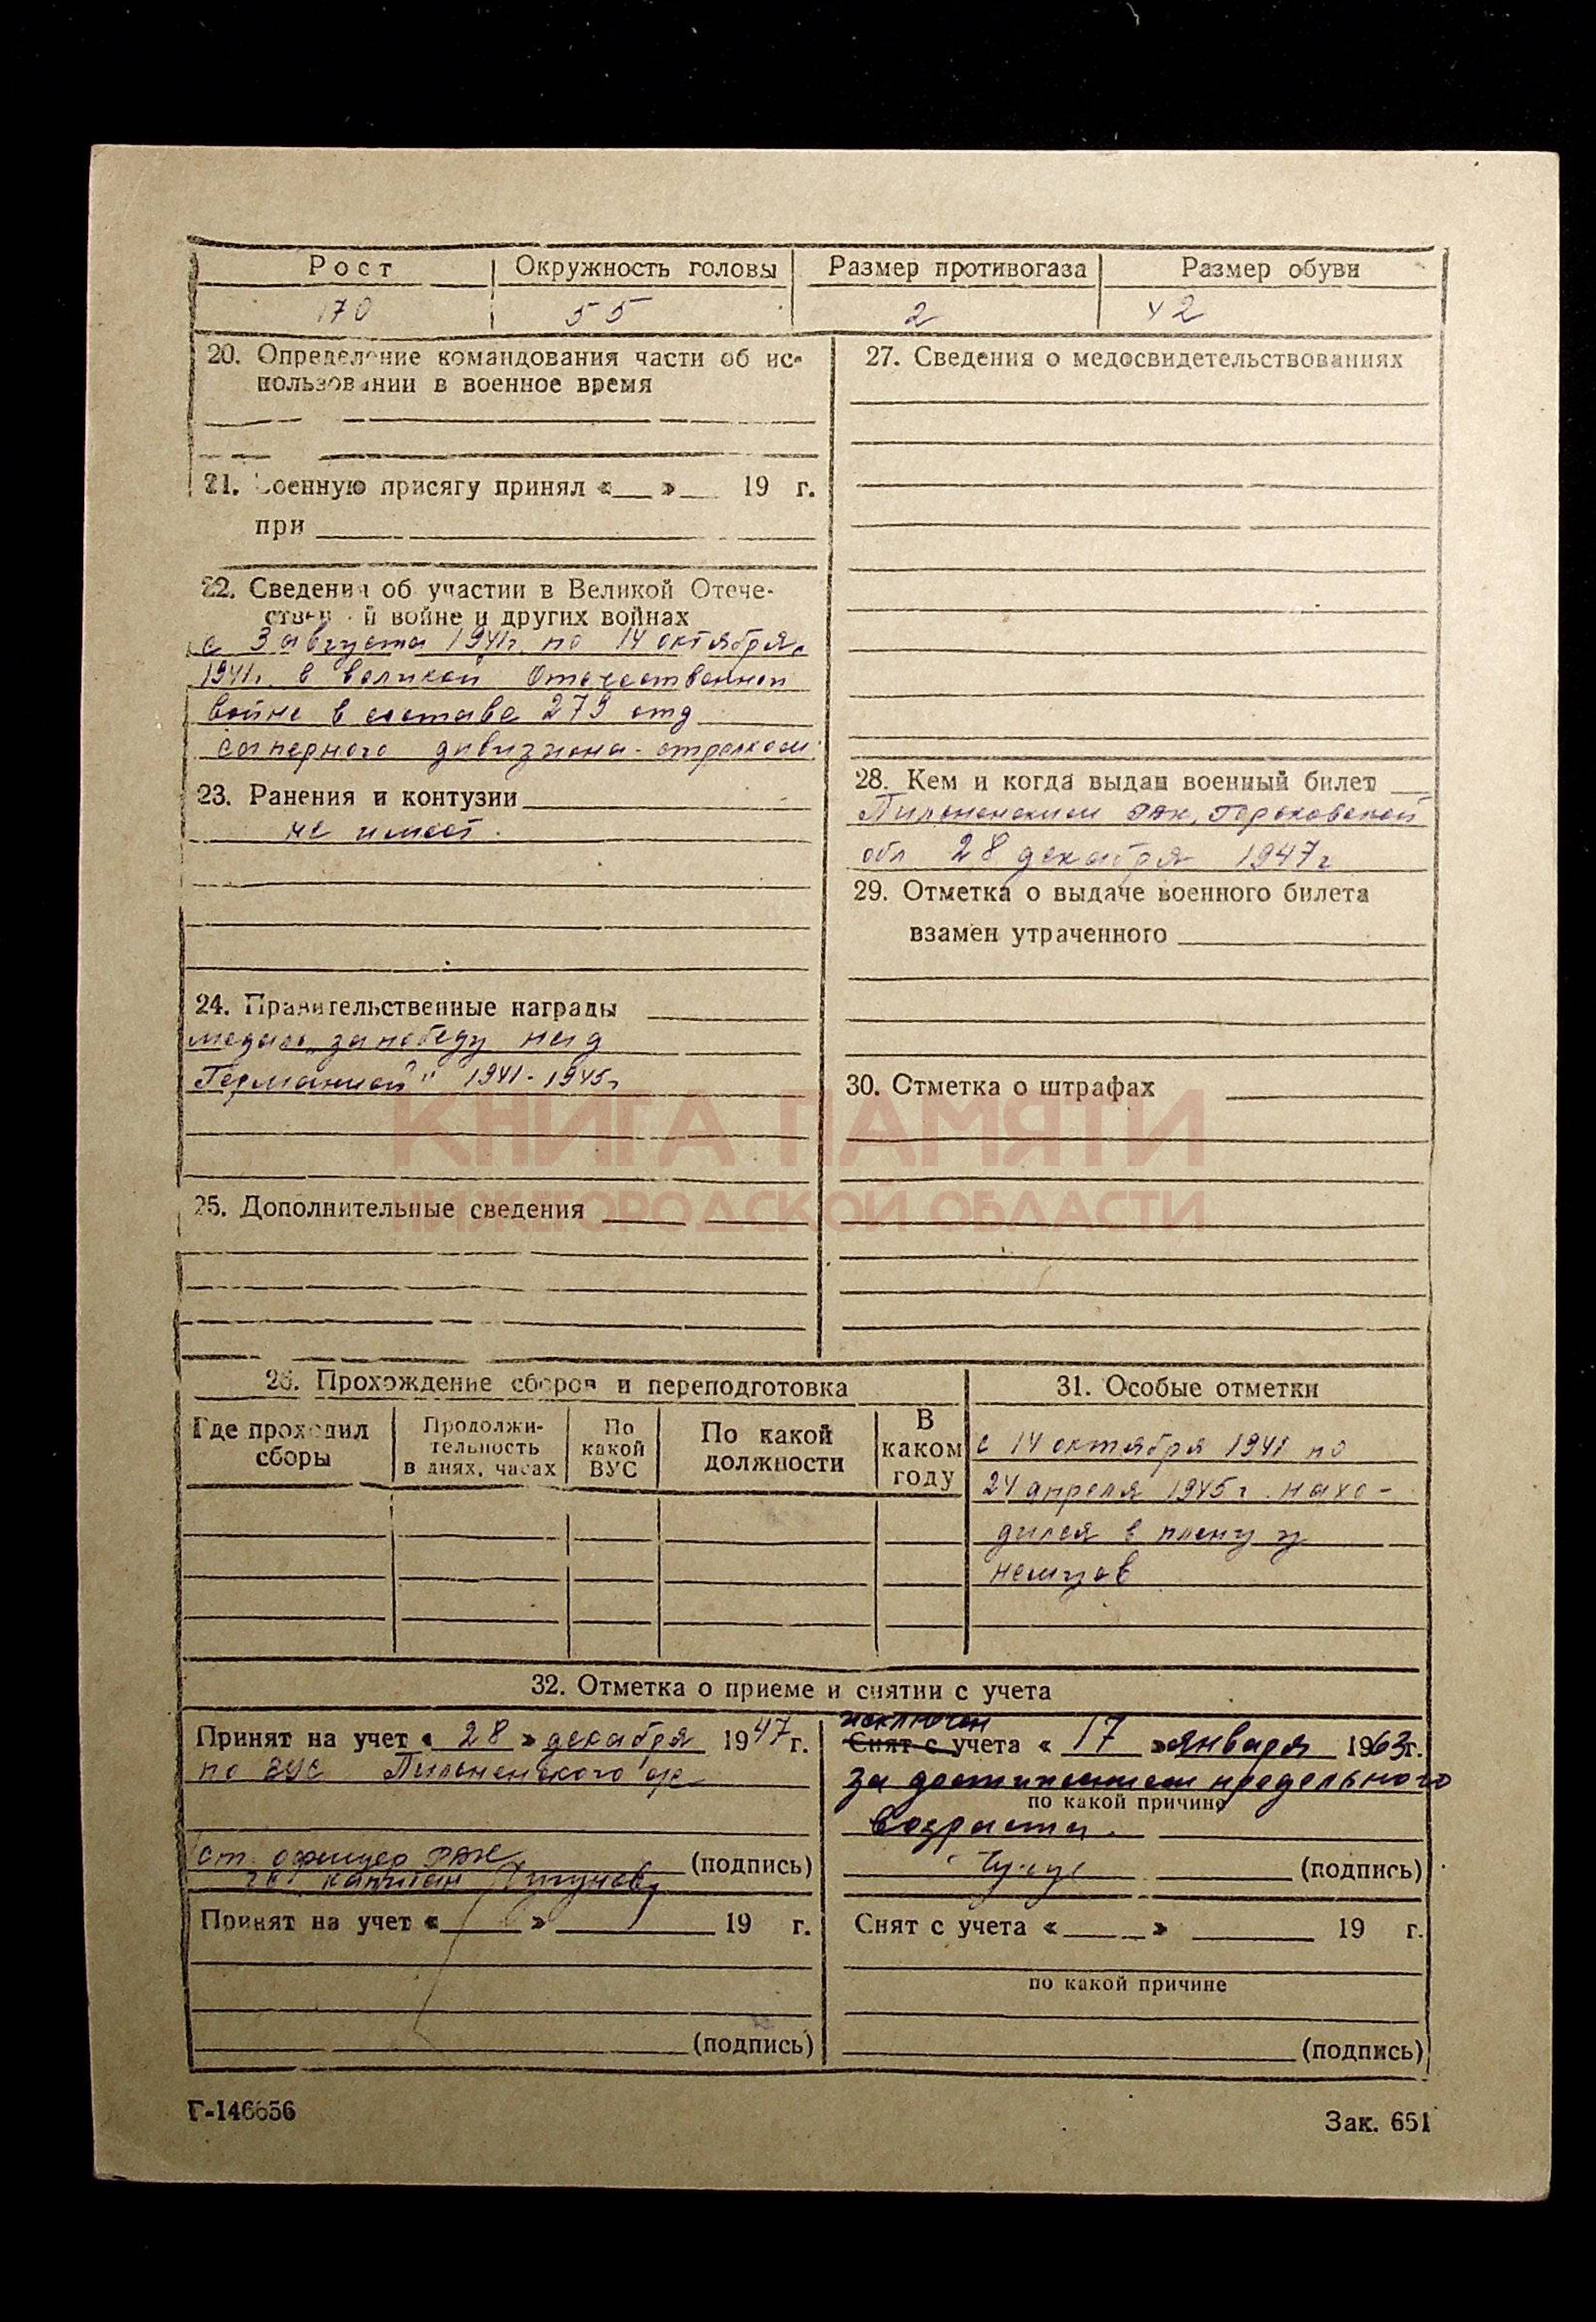 Рост Окружность головы Размер противогаза Размер обуви
170 55 2 42
20. Определение командования части об ис-
пользовании в военное время
21. Военную присягу принял «__» __ 19 г.
при
22. Сведения об участии в Великой Отече-
ственной войне и других войнах
с 3 августа 1941г. по 14 октября
1941г. в великой Отечественной
войне в составе 279 отд
саперного дивизиона - стрелком
23. Ранения и контузии
не имеет.
24. Правительственные награды
медаль „за победу над
Германией" 1941-1945г
25. Дополнительные сведения
27. Сведения о медосвидетельствованиях
28. Кем и когда выдан военный билет
Пильненским РВК, Горьковской
обл 28 декабря 1947г
29. Отметка о выдаче военного билета
взамен утраченного
30. Отметка о штрафах
КНИГА ПАМЯТИ
НИЖЕГОРОДСКОЙ ОБЛАСТИ
26. Прохождение сборов и переподготовка
Где проходил сборы
Продолжи-
тельность
в днях, часах
По
какой
ВУС
По какой
должности
В
каком
году
31. Особые отметки
с 14 октября 1941 по
24 апреля 1945г. нахо-
дился в плену у
немцов
32. Отметка о приеме и снятии с учета
Принят на учет « 28 » декабря 1947г.
по ВУС Пильненского
ст. офицер РВК (подпись)
капитан
исключен
Снят с учета « 17 » января 1963г.
за достижением предельного
по какой причине
возраста.
(подпись)
Принят на учет «__» __ 19 г.
(подпись)
Снят с учета «__» __ 19 г.
по какой причине
(подпись)
Г-146656
Зак. 651